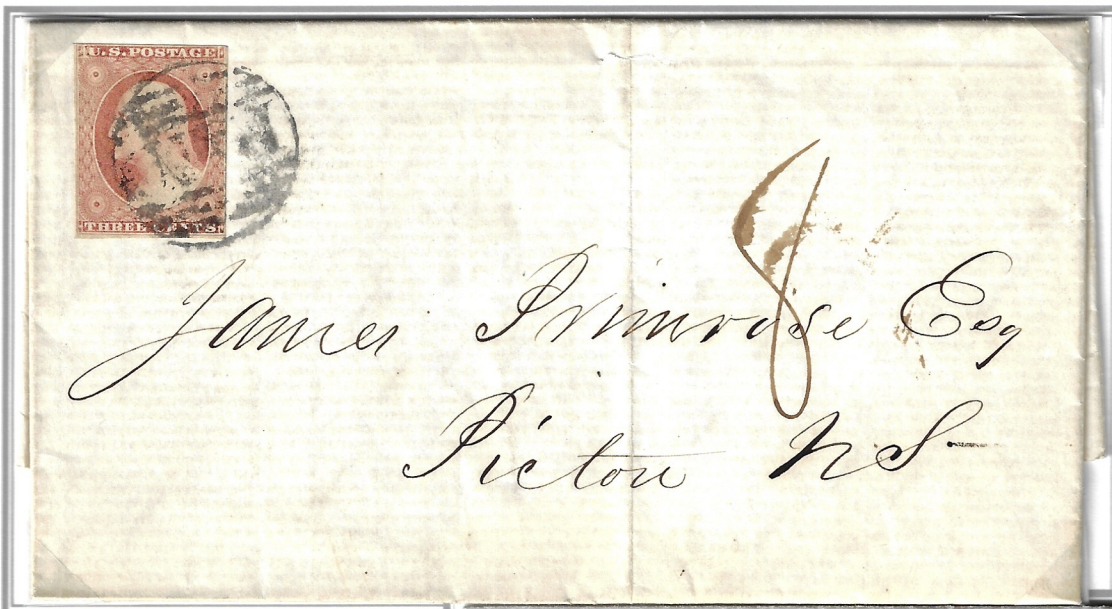 U.S. POSTAGE
THREE CENTS.
8
James Primrose Esq
Picton NS